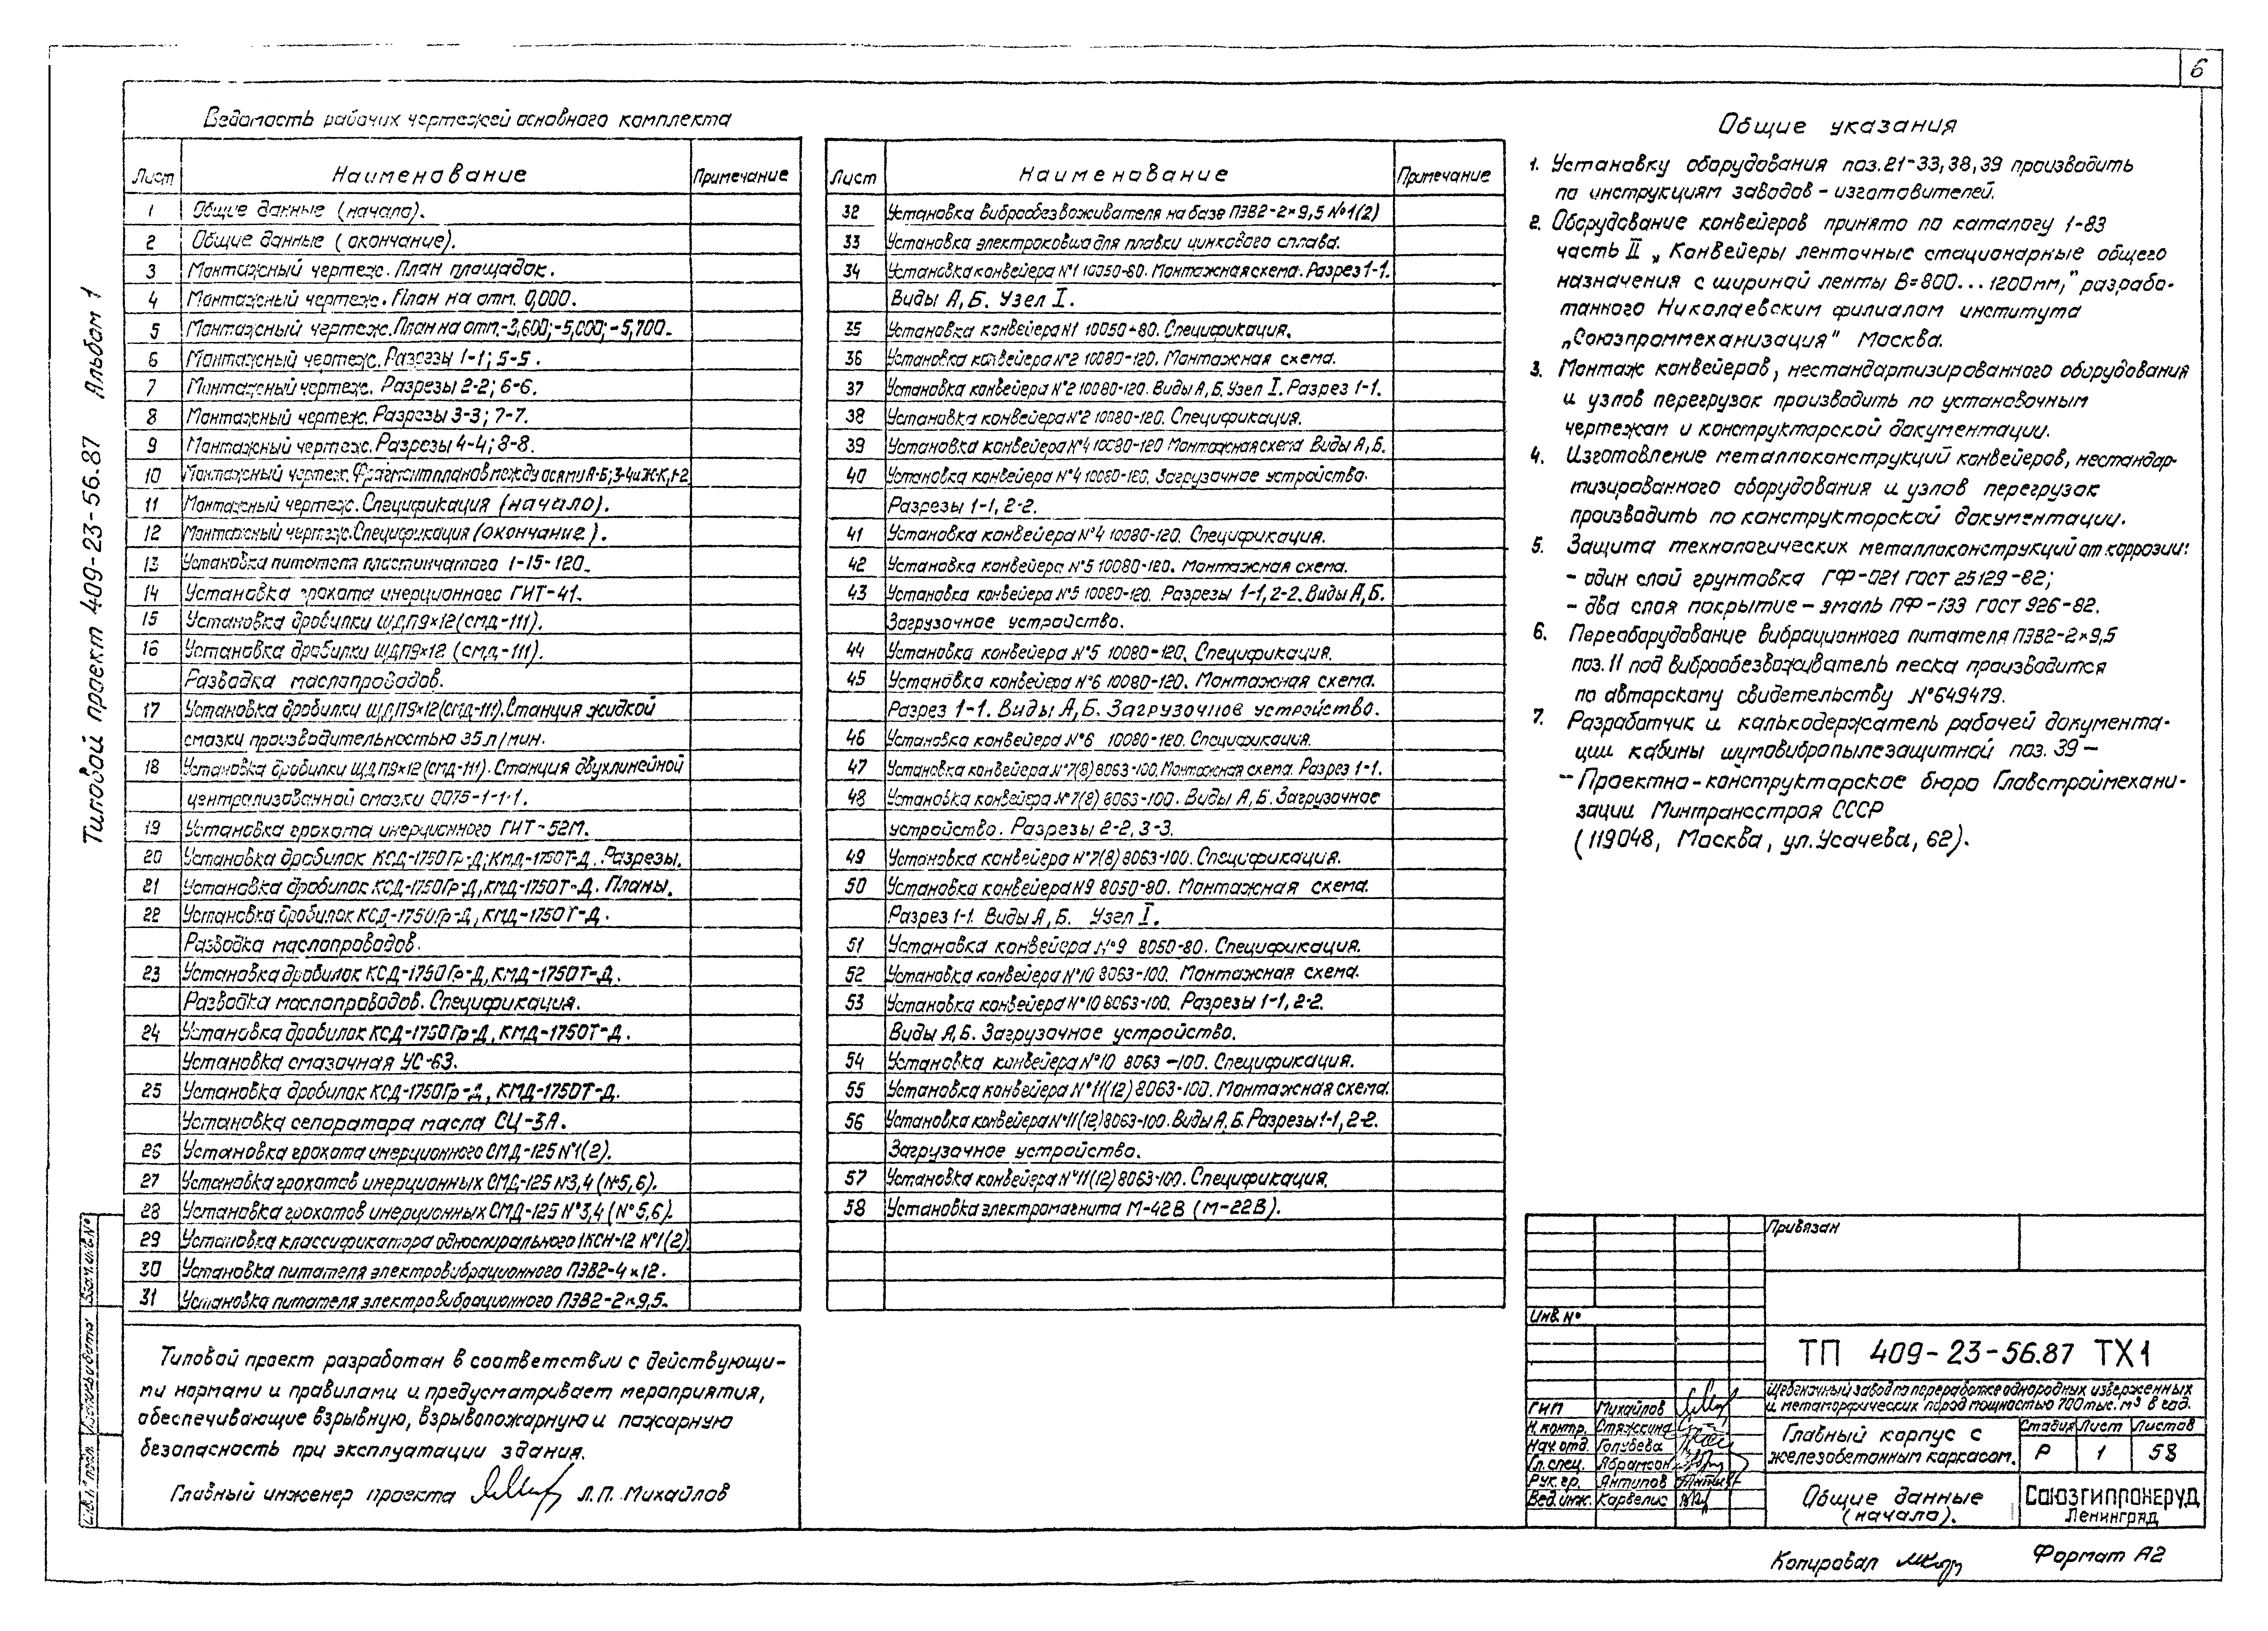 6
Типовой проект 409-23-56.87 Альбом 1
Ведомость рабочих чертежей основного комплекта
Лист Наименование Примечание
1 Общие данные (начало).
2 Общие данные (окончание).
3 Монтажный чертеж. План площадок.
4 Монтажный чертеж. План на отм. 0,000.
5 Монтажный чертеж. План на отм.-3,600;-5,000;-5,700.
6 Монтажный чертеж. Разрезы 1-1; 5-5.
7 Монтажный чертеж. Разрезы 2-2; 6-6.
8 Монтажный чертеж. Разрезы 3-3; 7-7.
9 Монтажный чертеж. Разрезы 4-4; 8-8.
10 Монтажный чертеж. Фрагмент планов между осями А-Б; 3-4 и Ж-К, 1-2
11 Монтажный чертеж. Спецификация (начало).
12 Монтажный чертеж. Спецификация (окончание).
13 Установка питателя пластинчатого 1-15-120.
14 Установка грохота инерционного ГИТ-41.
15 Установка дробилки ЩДП9×12 (СМД-111).
16 Установка дробилки ЩДП9×12 (СМД-111).
Разводка маслопроводов.
17 Установка дробилки ЩДП9×12(СМД-111). Станция жидкой
смазки производительностью 35 л/мин.
18 Установка дробилки ЩДП9×12 (СМД-111). Станция двухлинейной
централизованной смазки 0075-1-1-1.
19 Установка грохота инерционного ГИТ-52М.
20 Установка дробилок КСД-1750Гр-Д; КМД-1750Т-Д. Разрезы.
21 Установка дробилок КСД-1750Гр-Д, КМД-1750Т-Д. Планы.
22 Установка дробилок КСД-1750Гр-Д, КМД-1750Т-Д.
Разводка маслопроводов.
23 Установка дробилок КСД-1750Гр-Д, КМД-1750Т-Д.
Разводка маслопроводов. Спецификация.
24 Установка дробилок КСД-1750Гр-Д, КМД-1750Т-Д.
Установка смазочная УС-63.
25 Установка дробилок КСД-1750Гр-Д, КМД-1750Т-Д.
Установка сепаратора масла СЦ-3А.
26 Установка грохота инерционного СМД-125 №1(2).
27 Установка грохотов инерционных СМД-125 №3,4 (№5,6).
28 Установка грохотов инерционных СМД-125 №3,4 (№5,6).
29 Установка классификатора односпирального 1КСН-12 №1(2).
30 Установка питателя электровибрационного ПЭВ2-4×12.
31 Установка питателя электровибрационного ПЭВ2-2×9,5.
Лист Наименование Примечание
32 Установка виброобезвоживателя на базе ПЭВ2-2×9,5 №1(2)
33 Установка электроковша для плавки цинкового сплава.
34 Установка конвейера №1 10050-80. Монтажная схема. Разрез 1-1.
Виды А, Б. Узел I.
35 Установка конвейера №1 10050-80. Спецификация.
36 Установка конвейера №2 10080-120. Монтажная схема.
37 Установка конвейера №2 10080-120. Виды А, Б. Узел I. Разрез 1-1.
38 Установка конвейера №2 10080-120. Спецификация.
39 Установка конвейера №4 10080-120 Монтажная схема Виды А, Б.
40 Установка конвейера №4 10080-120. Загрузочное устройство.
Разрезы 1-1, 2-2.
41 Установка конвейера №4 10080-120. Спецификация.
42 Установка конвейера №5 10080-120. Монтажная схема.
43 Установка конвейера №5 10080-120. Разрезы 1-1, 2-2. Виды А, Б.
Загрузочное устройство.
44 Установка конвейера №5 10080-120. Спецификация.
45 Установка конвейера №6 10080-120. Монтажная схема.
Разрез 1-1. Виды А, Б. Загрузочное устройство.
46 Установка конвейера №6 10080-120. Спецификация.
47 Установка конвейера №7(8) 8063-100. Монтажная схема. Разрез 1-1.
48 Установка конвейера №7(8) 8063-100. Виды А, Б. Загрузочное
устройство. Разрезы 2-2, 3-3.
49 Установка конвейера №7(8) 8063-100. Спецификация.
50 Установка конвейера №9 8050-80. Монтажная схема.
Разрез 1-1. Виды А, Б. Узел I.
51 Установка конвейера №9 8050-80. Спецификация.
52 Установка конвейера №10 8063-100. Монтажная схема.
53 Установка конвейера №10 8063-100. Разрезы 1-1, 2-2.
Виды А, Б. Загрузочное устройство.
54 Установка конвейера №10 8063-100. Спецификация.
55 Установка конвейера №11(12) 8063-100. Монтажная схема.
56 Установка конвейера №11(12) 8063-100. Виды А, Б. Разрезы 1-1, 2-2.
Загрузочное устройство.
57 Установка конвейера №11(12) 8063-100. Спецификация.
58 Установка электромагнита М-42В (М-22В).
Общие указания
1. Установку оборудования поз.21-33, 38, 39 производить
по инструкциям заводов-изготовителей.
2. Оборудование конвейеров принято по каталогу 1-83
часть II „Конвейеры ленточные стационарные общего
назначения с шириной ленты В=800...1200мм," разрабо-
танного Николаевским филиалом института
„Союзпроммеханизация" Москва.
3. Монтаж конвейеров, нестандартизированного оборудования
и узлов перегрузок производить по установочным
чертежам и конструкторской документации.
4. Изготовление металлоконструкций конвейеров, нестандар-
тизированного оборудования и узлов перегрузок
производить по конструкторской документации.
5. Защита технологических металлоконструкций от коррозии:
- один слой грунтовка ГФ-021 ГОСТ 25129-82;
- два слоя покрытие - эмаль ПФ-133 ГОСТ 926-82.
6. Переоборудование вибрационного питателя ПЭВ2-2×9,5
поз. 11 под виброобезвоживатель песка производится
по авторскому свидетельству №649479.
7. Разработчик и калькодержатель рабочей документа-
ции кабины шумовибропылезащитной поз. 39 —
— Проектно-конструкторское бюро Главстроймехани-
зации Минтрансстроя СССР
(119048, Москва, ул.Усачева, 62).
Типовой проект разработан в соответствии с действующи-
ми нормами и правилами и предусматривает мероприятия,
обеспечивающие взрывную, взрывопожарную и пожарную
безопасность при эксплуатации здания.
Главный инженер проекта Л.П. Михайлов
Взам. инв. №
Подпись и дата
Инв. № подл.
Привязан
Инв. №
ТП 409-23-56.87 ТХ1
Щебеночный завод по переработке однородных изверженных
и метаморфических пород мощностью 700 тыс. м³ в год.
ГИП Михайлов
Н. контр. Стяжкина
Нач. отд. Голубева
Гл. спец. Абрамсон
Рук. гр. Антипов
Вед. инж. Карвелис
Главный корпус с
железобетонным каркасом.
Стадия Лист Листов
Р 1 58
Общие данные
(начало).
Союзгипронеруд
Ленинград
Копировал
Формат А2